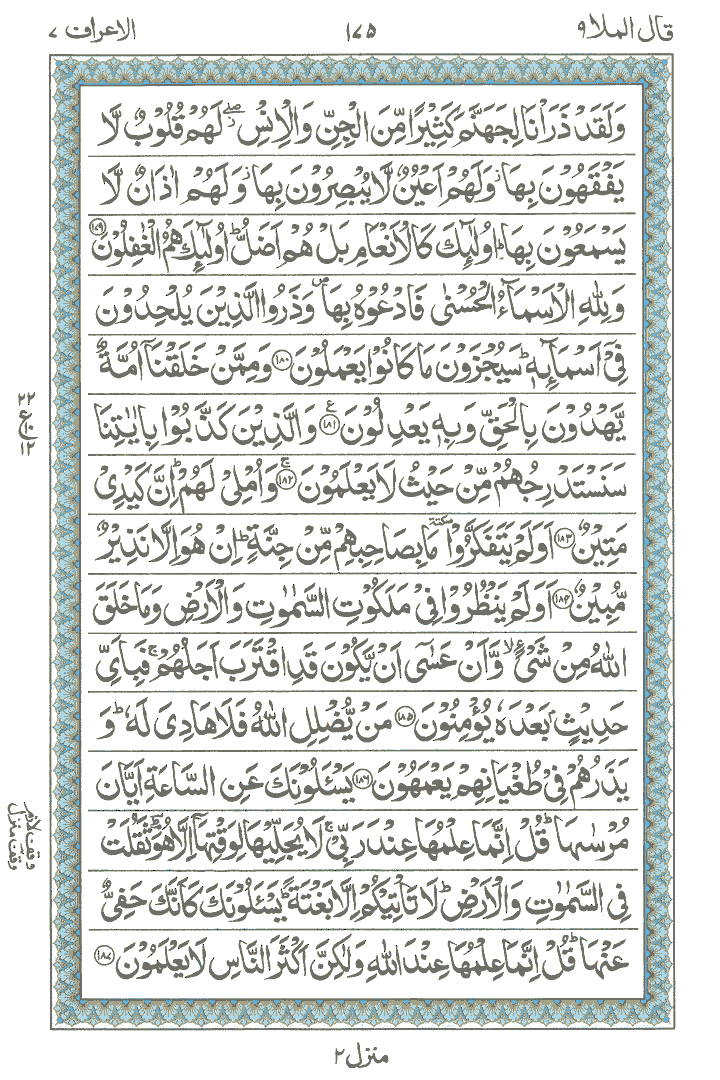 قال الملا ۹ ۱۷۵ الاعراف ۷
وَلَقَدْ ذَرَاْنَا لِجَهَنَّمَ كَثِيْرًا مِّنَ الْجِنِّ وَالْاِنْسِ ۖ لَهُمْ قُلُوْبٌ لَّا
يَفْقَهُوْنَ بِهَا ز وَلَهُمْ اَعْيُنٌ لَّا يُبْصِرُوْنَ بِهَا ز وَلَهُمْ اٰذَانٌ لَّا
يَسْمَعُوْنَ بِهَا ؕ اُولٰٓئِكَ كَالْاَنْعَامِ بَلْ هُمْ اَضَلُّ ؕ اُولٰٓئِكَ هُمُ الْغٰفِلُوْنَ ۱۷۹
وَلِلّٰهِ الْاَسْمَآءُ الْحُسْنٰى فَادْعُوْهُ بِهَا ص وَذَرُوا الَّذِيْنَ يُلْحِدُوْنَ
فِيْٓ اَسْمَآئِهٖ ؕ سَيُجْزَوْنَ مَا كَانُوْا يَعْمَلُوْنَ ۱۸۰ وَمِمَّنْ خَلَقْنَآ اُمَّةٌ
يَّهْدُوْنَ بِالْحَقِّ وَبِهٖ يَعْدِلُوْنَ ۱۸۱ ع وَالَّذِيْنَ كَذَّبُوْا بِاٰيٰتِنَا
سَنَسْتَدْرِجُهُمْ مِّنْ حَيْثُ لَا يَعْلَمُوْنَ ۱۸۲ ج وَاُمْلِيْ لَهُمْ ؕ اِنَّ كَيْدِيْ
مَتِيْنٌ ۱۸۳ اَوَلَمْ يَتَفَكَّرُوْا سكتة مَا بِصَاحِبِهِمْ مِّنْ جِنَّةٍ ؕ اِنْ هُوَ اِلَّا نَذِيْرٌ
مُّبِيْنٌ ۱۸۴ اَوَلَمْ يَنْظُرُوْا فِيْ مَلَكُوْتِ السَّمٰوٰتِ وَالْاَرْضِ وَمَا خَلَقَ
اللّٰهُ مِنْ شَيْءٍ لا وَّاَنْ عَسٰٓى اَنْ يَّكُوْنَ قَدِ اقْتَرَبَ اَجَلُهُمْ ج فَبِاَيِّ
حَدِيْثٍۢ بَعْدَهٗ يُؤْمِنُوْنَ ۱۸۵ مَنْ يُّضْلِلِ اللّٰهُ فَلَا هَادِيَ لَهٗ ؕ وَ
يَذَرُهُمْ فِيْ طُغْيَانِهِمْ يَعْمَهُوْنَ ۱۸۶ يَسْئَلُوْنَكَ عَنِ السَّاعَةِ اَيَّانَ
مُرْسٰىهَا ؕ قُلْ اِنَّمَا عِلْمُهَا عِنْدَ رَبِّيْ ج لَا يُجَلِّيْهَا لِوَقْتِهَآ اِلَّا هُوَ ثَقُلَتْ
فِي السَّمٰوٰتِ وَالْاَرْضِ ؕ لَا تَاْتِيْكُمْ اِلَّا بَغْتَةً ؕ يَسْئَلُوْنَكَ كَاَنَّكَ حَفِيٌّ
عَنْهَا ؕ قُلْ اِنَّمَا عِلْمُهَا عِنْدَ اللّٰهِ وَلٰكِنَّ اَكْثَرَ النَّاسِ لَا يَعْلَمُوْنَ ۱۸۷
۲۲
ع
۱۲
وقف لازم
وقف منزل
منزل ۲